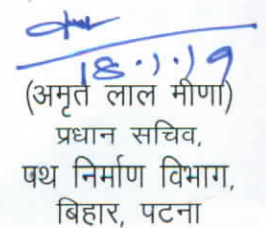 18.1.19
(अमृत लाल मीणा)
प्रधान सचिव,
पथ निर्माण विभाग,
बिहार, पटना